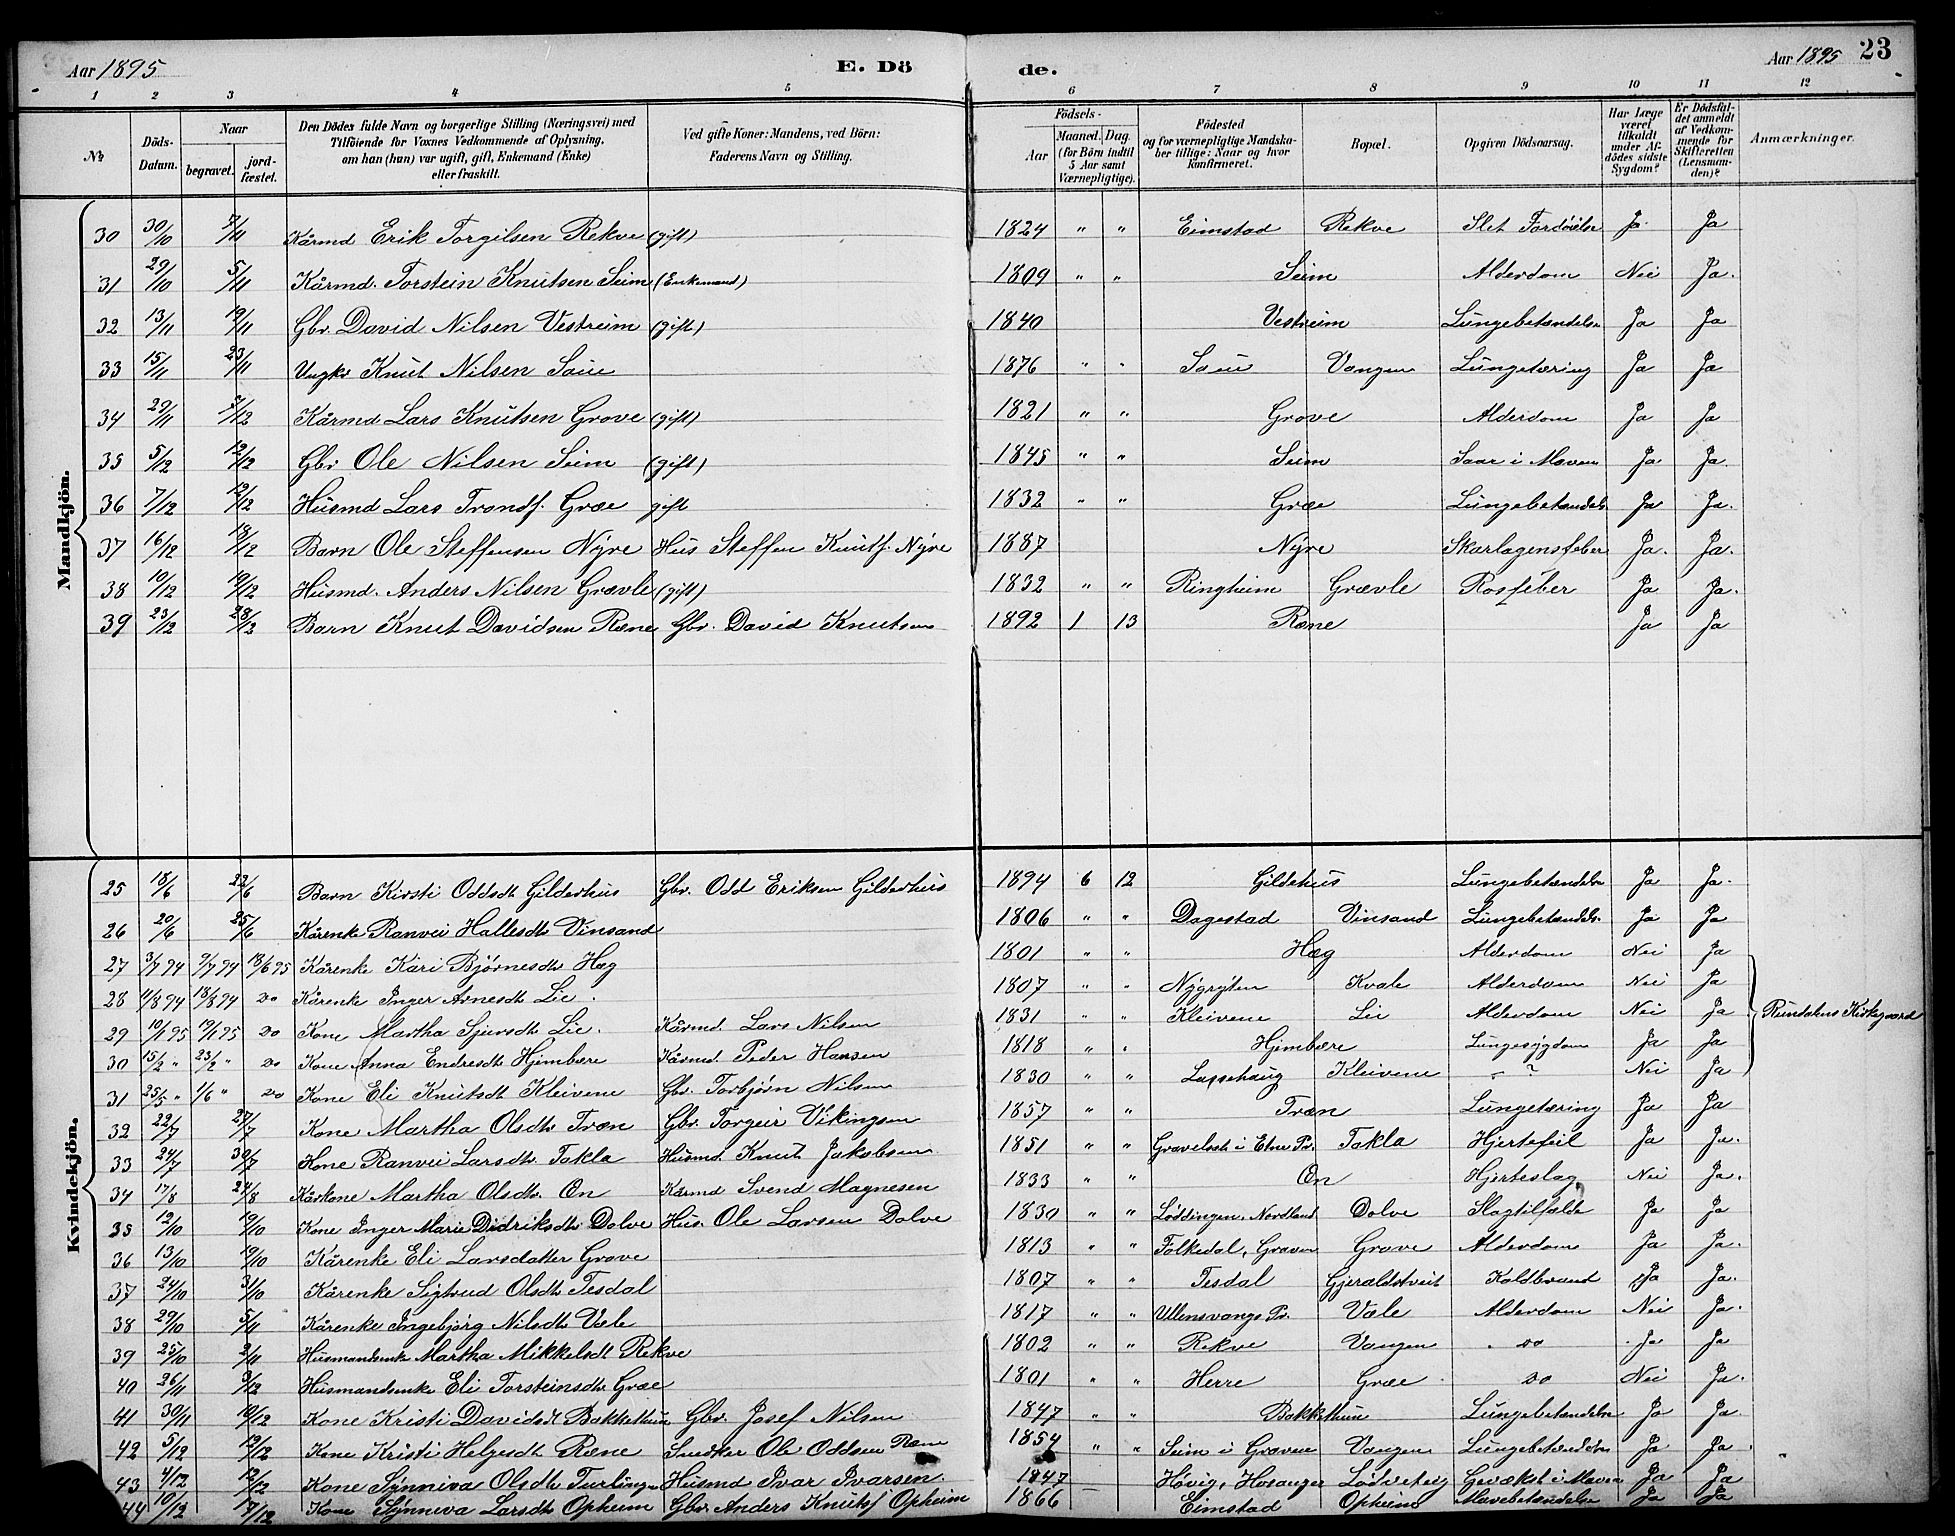 Aar 1895 E. Dö de. Aar 1895 23
1 2 3 4 5 6 7 8 9 10 11 12
№ Döds-Datum. Naar begravet. jord-fæstet. Den Dödes fulde Navn og borgerlige Stilling (Næringsvei) med Tilföiende for Voxnes Vedkommende af Oplysning, om han (hun) var ugift, gift, Enkemand (Enke) eller fraskilt. Ved gifte Koner: Mandens, ved Börn: Faderens Navn og Stilling. Födsels- Aar Maaned. Dag. (for Börn indtil 5 Aar samt Værnepligtige). Födested og for værnepligtige Mandskaber tillige: Naar og hvor Konfirmeret. Bopæl. Opgiven Dödsaarsag. Har Læge været tilkaldt under Afdödes sidste Sygdom? Er Dödsfaldet anmeldt af Vedkommende for Skifteretten (Lensmanden)? Anmærkninger.
Mandkjön.
30 30/10 7/11 Kårmd Erik Torgilsen Rekve (gift) 1824 " " Eimstad Rekve Slet Fordöielse Ja Ja
31 29/10 5/11 Kårmd. Torstein Knutsen Seim (Enkemand) 1809 " " Seim Alderdom Nei Ja.
32 13/11 19/11 Gbr. David Nilsen Vestreim (gift) 1840 Vestreim Lungebetændelse Ja Ja
33 15/11 23/11 Ungkr Knut Nilsen Saue 1876 " " Saue Vangen Lungetæring Ja Ja
34 29/11 7/12 Kårmd Lars Knutsen Grove (gift) 1821 " " Grove Alderdom Ja Ja
35 5/12 12/12 Gbr Ole Nilsen Seim (gift) 1845 " " Seim Saar i Maven Ja Ja.
36 7/12 12/12 Husmd Lars Trondf. Græe gift 1832 " " Græe Lungebetændels. Ja Ja.
37 16/12 18/12 Barn Ole Steffensen Nyre Hus Steffen Knutf. Nyre 1887 Nyre Skarlagensfeber Ja. Ja.
38 10/12 19/12 Husmd. Anders Nilsen Grævle (gift) 1832 " " Ringheim Grævle Rosfeber Ja Ja.
39 23/12 28/12 Barn Knut Davidsen Rene Gbr. David Knutsen 1892 1 13 Rene Ja Ja
Kvindekjön.
25 18/6 22/6 Barn Kirsti Oddsdt Gilderhus Gbr. Odd Eriksen Gilderhus 1894 6 12 Gildehus Lungebetændelse Ja Ja.
26 20/6 25/6 Kårenke Ranvei Hallesdtr Vinsand 1806 " " Dagestad Vinsand Lungebetændels. Ja Ja
27 3/7 94 9/7 94 18/6 95 Kårenke Kari Bjørnesdtr Hæg 1801 " " Hæg Alderdom Nei Ja
28 11/8 94 18/8 94 do Kårenke Inger Arnesdtr Lie. 1807 " " Nygryten Kvale Alderdom Nei Ja
29 10/1 95 19/1 95 do Kone Martha Sjursdtr Lie. Kårmd. Lars Nilsen 1831 " " Kleivene Lie Alderdom Nei Ja Rundalens Kirkegaard
30 15/2 " 23/2 " do Kone Anna Endresdtr Hjembære Kårmd. Peder Hansen 1818 " " Hjembære Lungesygdom Ja Ja
31 25/5 " 1/6 " do Kone Eli Knutsdt Kleivene Gbr. Torbjørn Nilsen 1830 " " Lassehaug Kleivene - ? Nei Ja
32 22/7 27/7 Kone Martha Olsdtr Træn Gbr. Torgeir Vikingsen 1857 " " Træn Lungetæring Ja Ja
33 24/7 30/7 Kone Ranvei Larsdtr Takla Husmd. Knut Jakobsen 1851 " " i Etne Pr. Takla Hjertefeil Ja Ja.
34 17/8 24/8 Kårkone Martha Olsdtr. Øn Kårmd Svend Magnesen 1833 " " Øn Hjerteslag Nei Ja.
35 12/10 19/10 Kone Inger Marie Didriksdtr Dolve Hus. Ole Larsen Dolve 1830 " " Løddingen, Nordland Dolve Slagtilfælde Ja Ja
36 13/10 19/10 Kårenke Eli Larsdatter Grove 1813 " " Folkedal, Graven Grove Alderdom Ja Ja.
37 24/10 31/10 Kårenke Sigtrud Olsdtr Tesdal 1807 " " Tesdal Gjeraldstveit Koldbrand Ja Ja.
38 29/10 5/11 Kårenke Ingebjørg Nilsdtr Væle 1817 " " Ullensvangs Pr. Væle Alderdom Nei Ja.
39 25/10 2/11 Husmandsenke Martha Mikkelsdt Rekve 1802 " " Rekve Vangen do Ja Ja
40 26/11 3/12 Husmandsenke Eli Torsteinsdtr Græe 1801 " " Herre Græe do Nei Ja.
41 30/11 10/12 Kone Kristi Davidsdt Bakkethun Gbr. Josef Nilsen 1847 " " Bakkethun Lungebetændelse Ja Ja.
42 5/12 12/12 Kone Kristi Helgesdt Ræne Snedker Ole Oddsen Ræne 1854 " " Seim i Graven Vangen Lungebetændelse Ja Ja.
43 4/12 12/12 Kone Synniva Olsdtr Husmd Ivar Ivarsen 1847 Høvig, Hosanger Lødveteig Gevækst i Maven Ja Ja
44 10/12 17/12 Kone Synneva Larsdtr Opheim Gbr. Anders Knutsf Opheim 1866 Eimstad Opheim Mavebetændelse Ja Ja